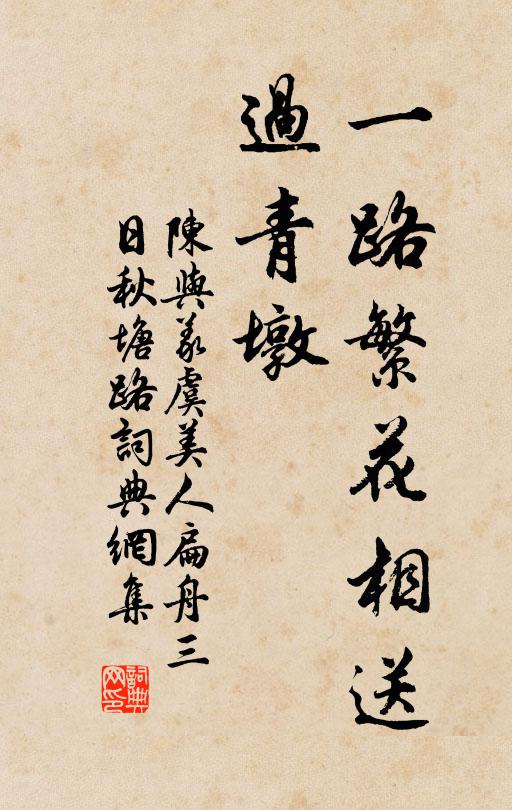 一路繁花相送
過青墩
陳與義虞美人扁舟三
日秋塘路詞典網集
詞典
网印